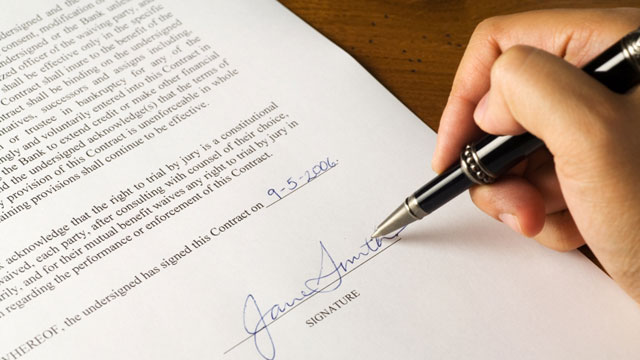 dersigned and the
consent, modification of
ndersigned or the Bank unless
zed officer of the waiving party, and
shall be effective only in the specific
Contract shall inure to the benefit of the
tract shall be binding on the undersigned
ntatives, successors and assigns including,
or trustee in bankruptcy for any of the
ngly and voluntarily entered into this Contract in
the Bank to extend credit or make other financial
d the undersigned acknowledge(s) that the terms of
y provision of this Contract is unenforceable in whole
aining provisions shall continue to be effective.
acknowledge that the right to trial by jury is a constitutional
waived, each party, after consulting with counsel of their choice,
arily, and for their mutual benefit waives any right to trial by jury in
n regarding the performance or enforcement of this Contract.
WHEREOF, the undersigned has signed this Contract on 9-5-2006.
Jane Smith
SIGNATURE